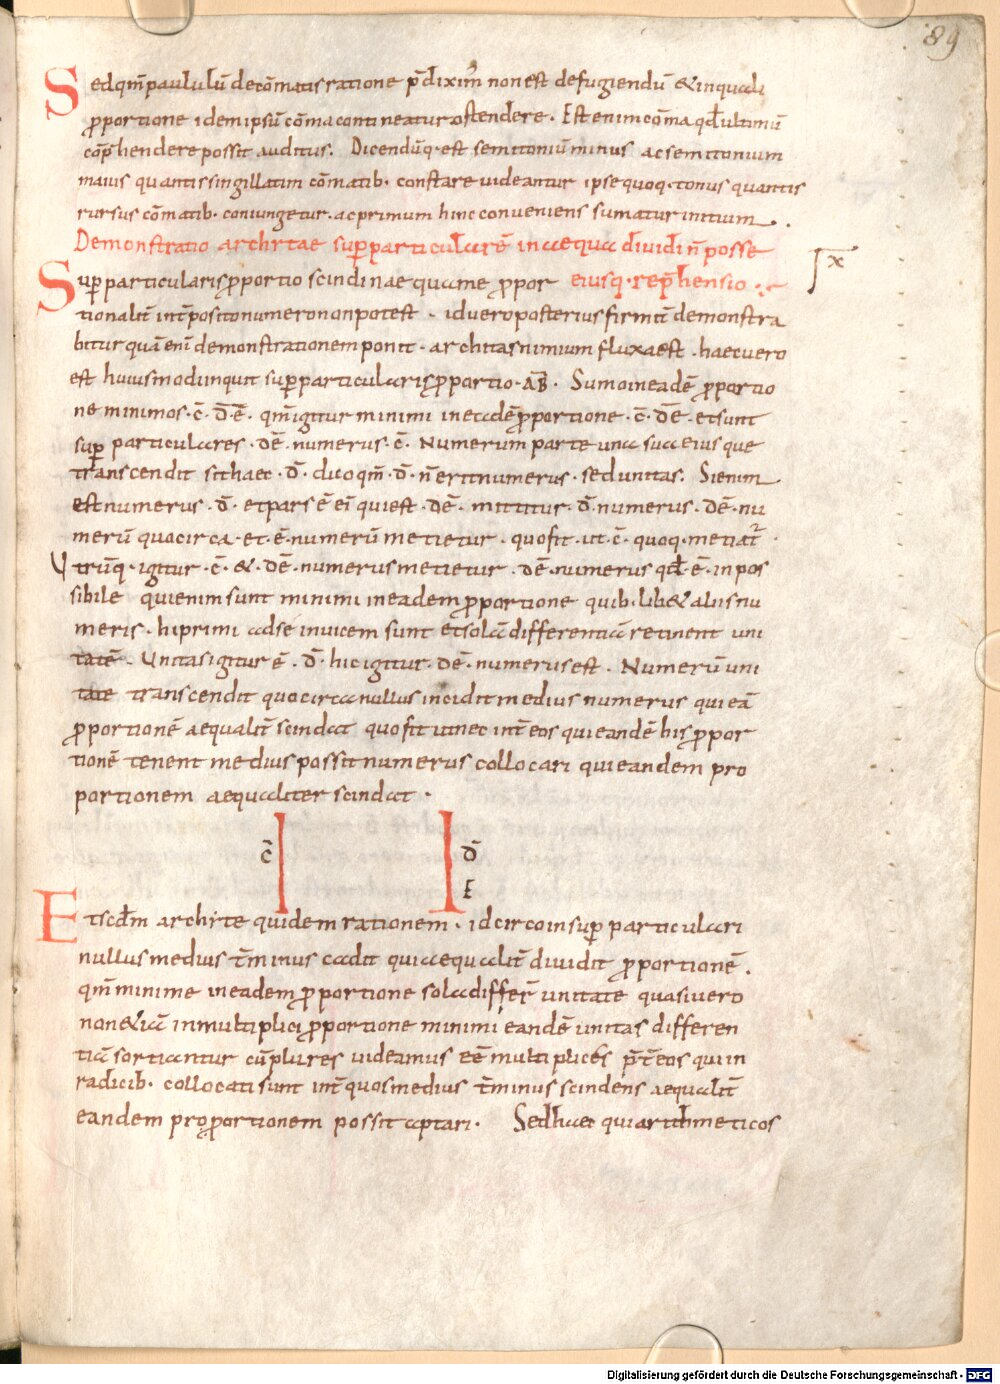 89
Sed qm̄ paululū de cōmatis ratione p̄diximꝰ non est defugiendū & in quali
ꝓportione idem ipsū cōma contineatur ostendere. Est enim cōma qđ ultimū
cōp̄hendere possit auditus. Dicendūq· est semitoniū minus ac semitonium
maius quantis singillatim cōmatib· constare uideantur ipse quoq· tonus quantis
rursus cōmatib· coniungetur· ac primum hinc conueniens sumatur initium.
Demonstratio archytae suꝑparticularē in aequa diuidi n̄ posse
Suꝑparticularis ꝓportio scindi in aequa me ꝓpor eiusq· rep̄hensio
x
tionalit̄ int̄posito numero non potest. id uero posterius firmit̄ demonstra
bitur quā eni demonstrationem ponit· architas nimium fluxa est. haec uero
est huiusmodi inquit suꝑparticularis ꝓportio·A B̄. Sumo in eadē ꝓportio
ne minimos· c̄· D̄Ē· qm̄ igitur minimi in eadē ꝓportione· c̄· D̄Ē· et sunt
suꝑ particulares· DĒ· numerus· c̄· Numerum parte una sua eiusque
transcendit sit haec· D̄· dico qm̄· D̄· n̄ erit numerus· sed unitas. Si enim
est numerus· D̄· et pars ē ei qui est· DĒ· mititur· D̄· numerus· DĒ· nu
merū quocirca· et· Ē· numerū metietur· quo fit· ut· c̄· quoq· metiat᷑
Utrūq· igitur· c̄· &· DĒ· numerus metietur· DĒ· numerus qđ· ē· inpos
sibile qui enim sunt minimi in eadem ꝓportione quib· lib& aliis nu
meris· hi primi ad se inuicem sunt et solā differentiā retinent uni
tatē. Unitas igitur ē· D̄· hic igitur· DĒ· numerus est. Numerū uni
tate transcendit quocirca nullus incidit medius numerus qui eā
ꝓportionē aequalit̄ scindat quo fit ut nec int̄ eos qui eandē his ꝓpor
tionē tenent medius possit numerus collocari qui eandem pro
portionem aequaliter scindat·
c̄ D̄
E
Et scdm̄ archite quidem rationem· idcirco in suꝑ particulari
nullus medius t̄minus cadit qui aequalit̄ diuidit ꝓportionē.
qm̄ minime in eadem ꝓportione sola differ̄ unitate quasi uero
non &iā in multiplici ꝓportione minimi eandē unitas differen
tiā sortiantur cū plures uideamus eē multiplices p̄t̄ eos qui in
radicib· collocati sunt int̄ quos medius t̄minus scindens aequalit̄
eandem proꝓportionem possit aptari· Sed haec qui arithmeticos
Digitalisierung gefördert durch die Deutsche Forschungsgemeinschaft - DFG